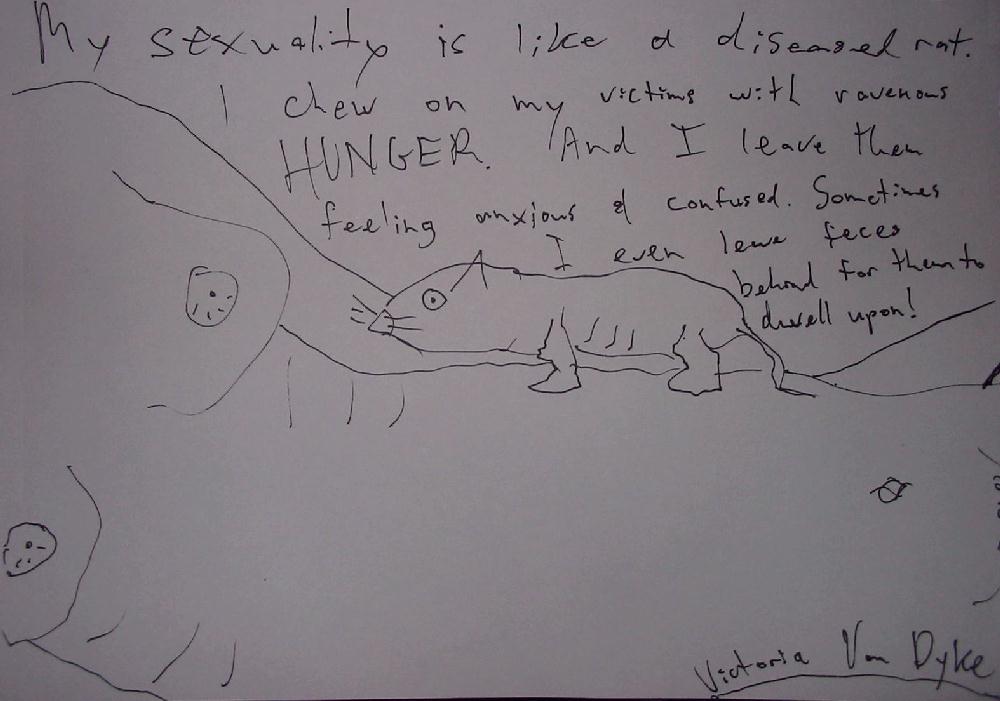 My sexuality is like a diseased rat.
I chew on my victims with ravenous
HUNGER. And I leave them
feeling anxious & confused. Sometimes
I even leave feces
behind for them to
dwell upon!
Victoria Van Dyke